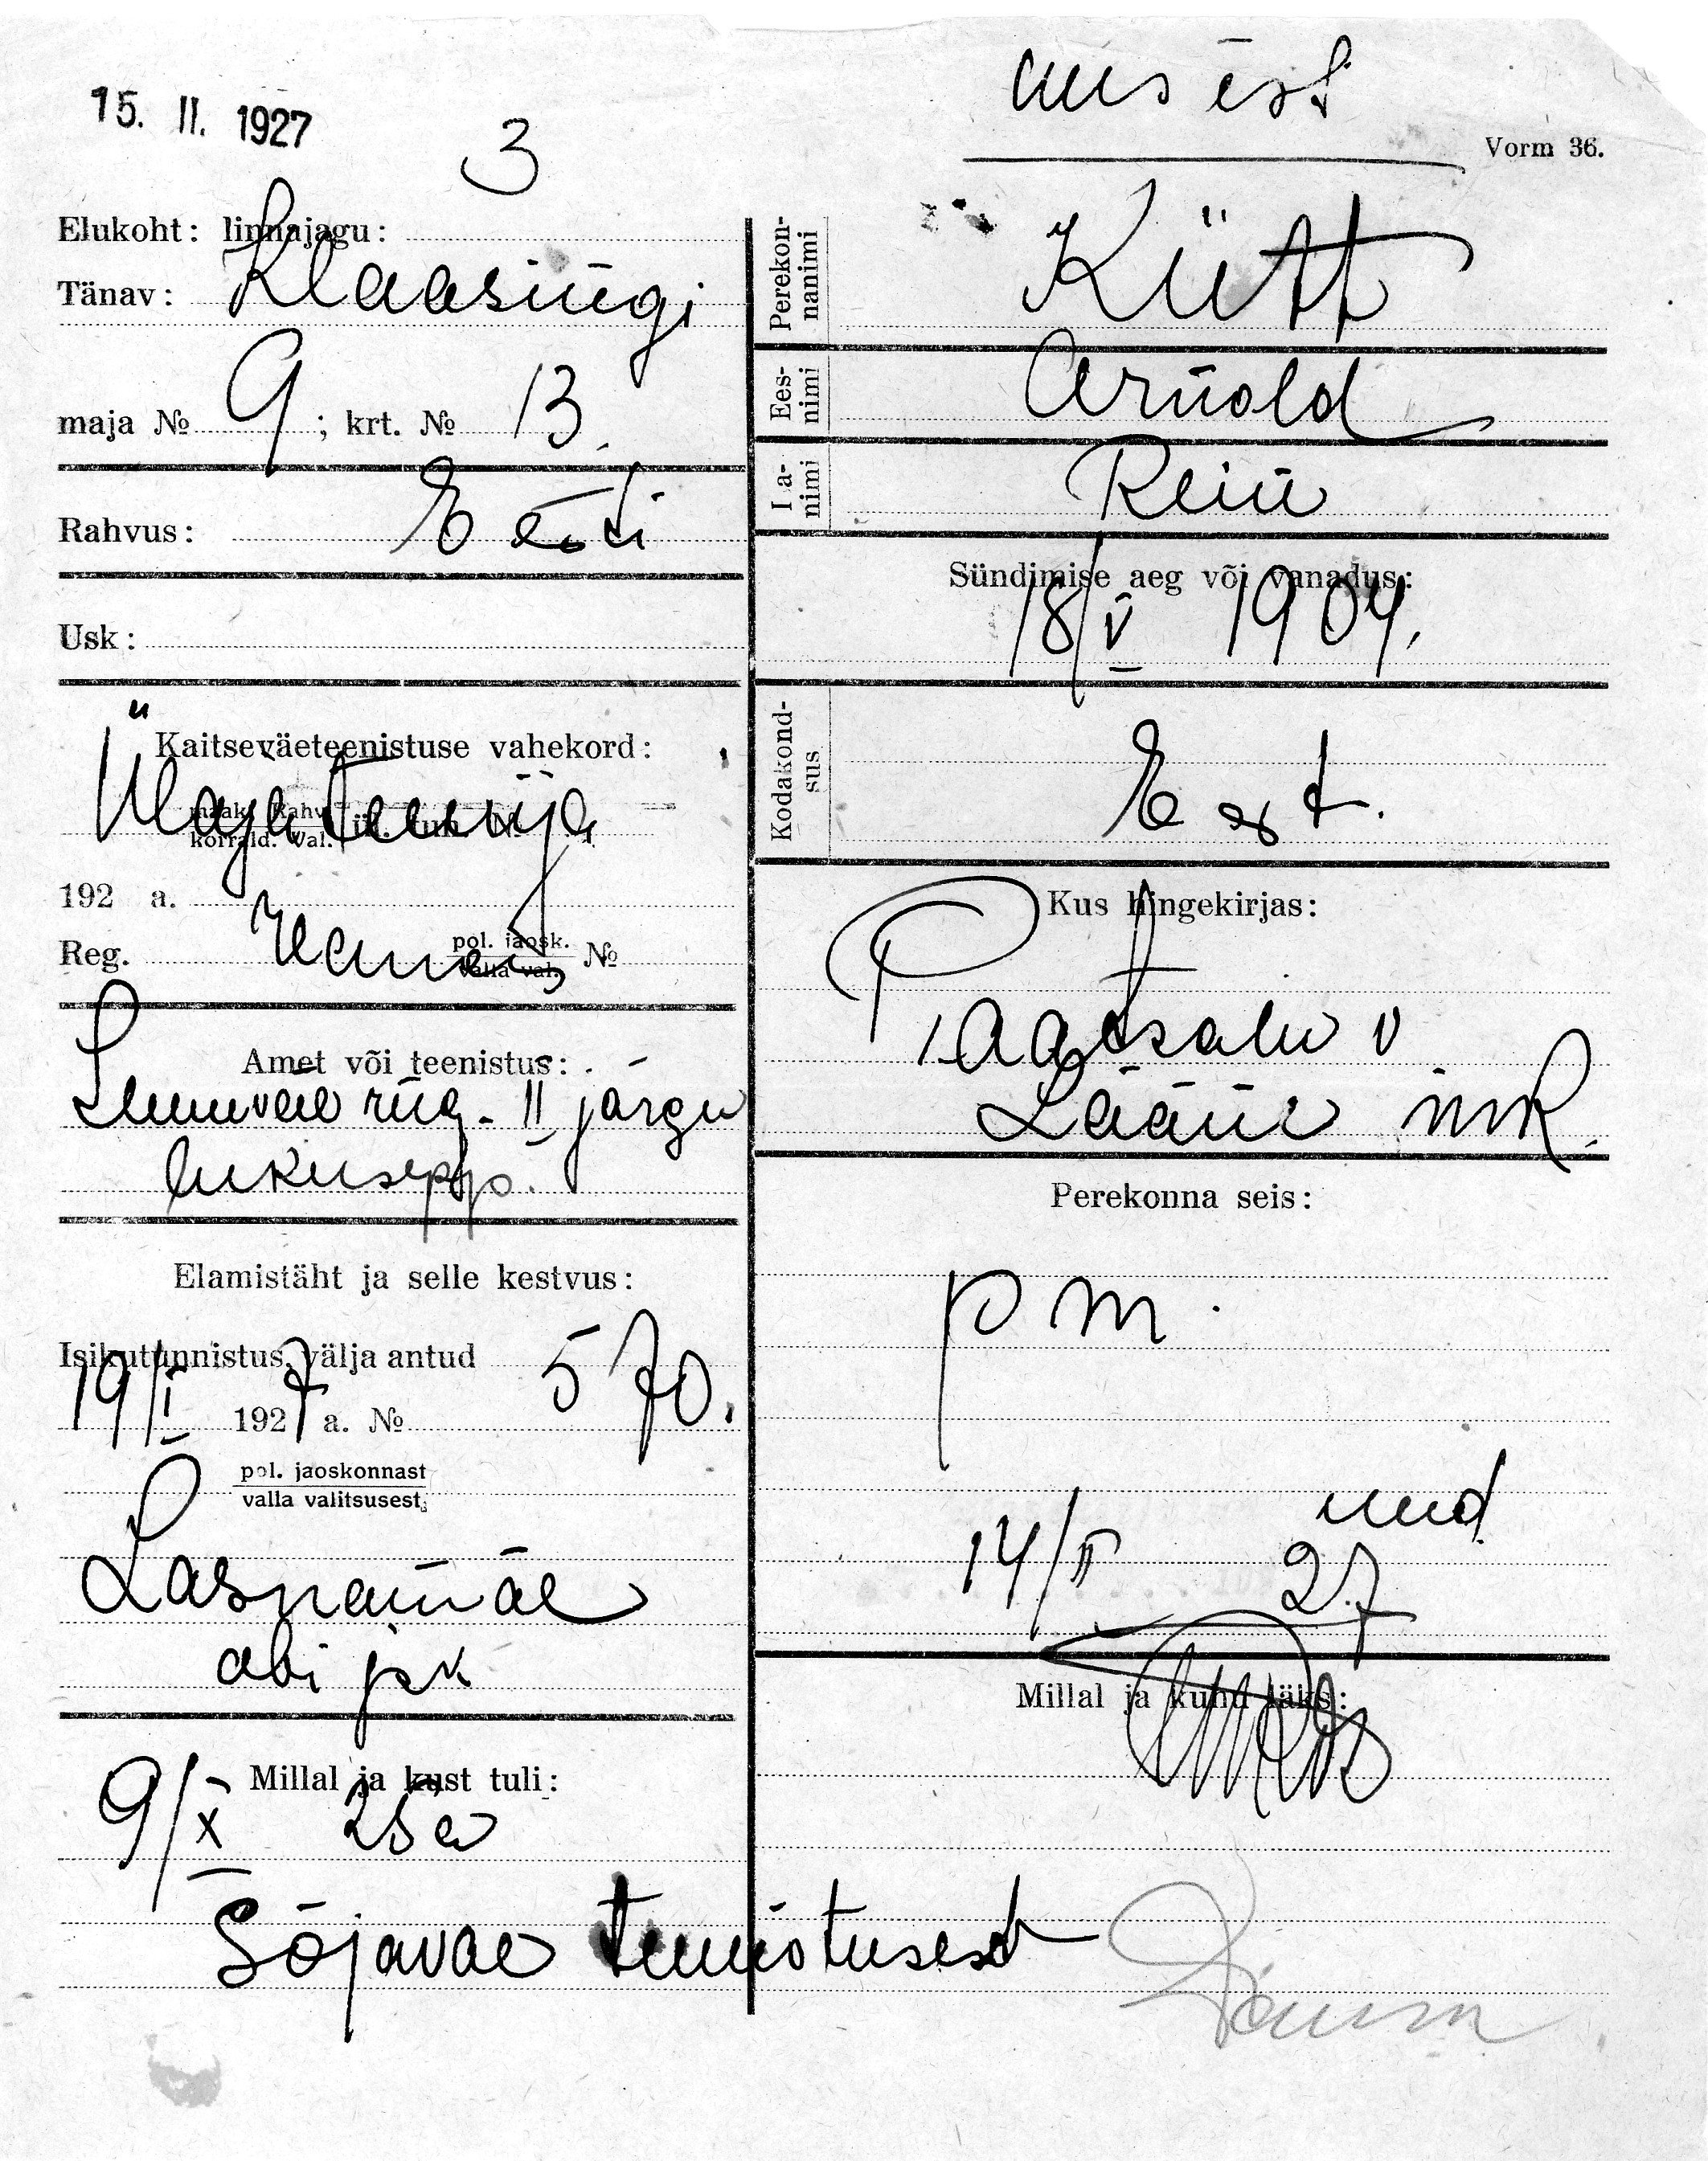 15. II. 1927
3
uus est
Vorm 36.
Elukoht: linnajagu:
Tänav: Klaasingi
maja № 9; krt. № 13.
Rahvus: Eesti
Usk:
Kaitseväeteenistuse vahekord:
192 a.
Reg. pol. jaosk. №
valla val.
Amet või teenistus:
II järgu
lukusepp.
Elamistäht ja selle kestvus:
Isikutunnistus, välja antud
19/I 1927 a. № 570.
pol. jaoskonnast
valla valitsusest
Lasnamäe
abi jsk
Millal ja kust tuli:
9/X 25 a
Sõjaväe teenistusest
Perekonnanimi
Kütt
Eesnimi
Arnold
Isanimi
Rein
Sündimise aeg või vanadus:
18/V 1904.
Kodakondsus
Est.
Kus hingekirjas:
Paatsalu v
Lääne mk.
Perekonna seis:
pm.
uued
14/II 27
Millal ja kuhu läks: